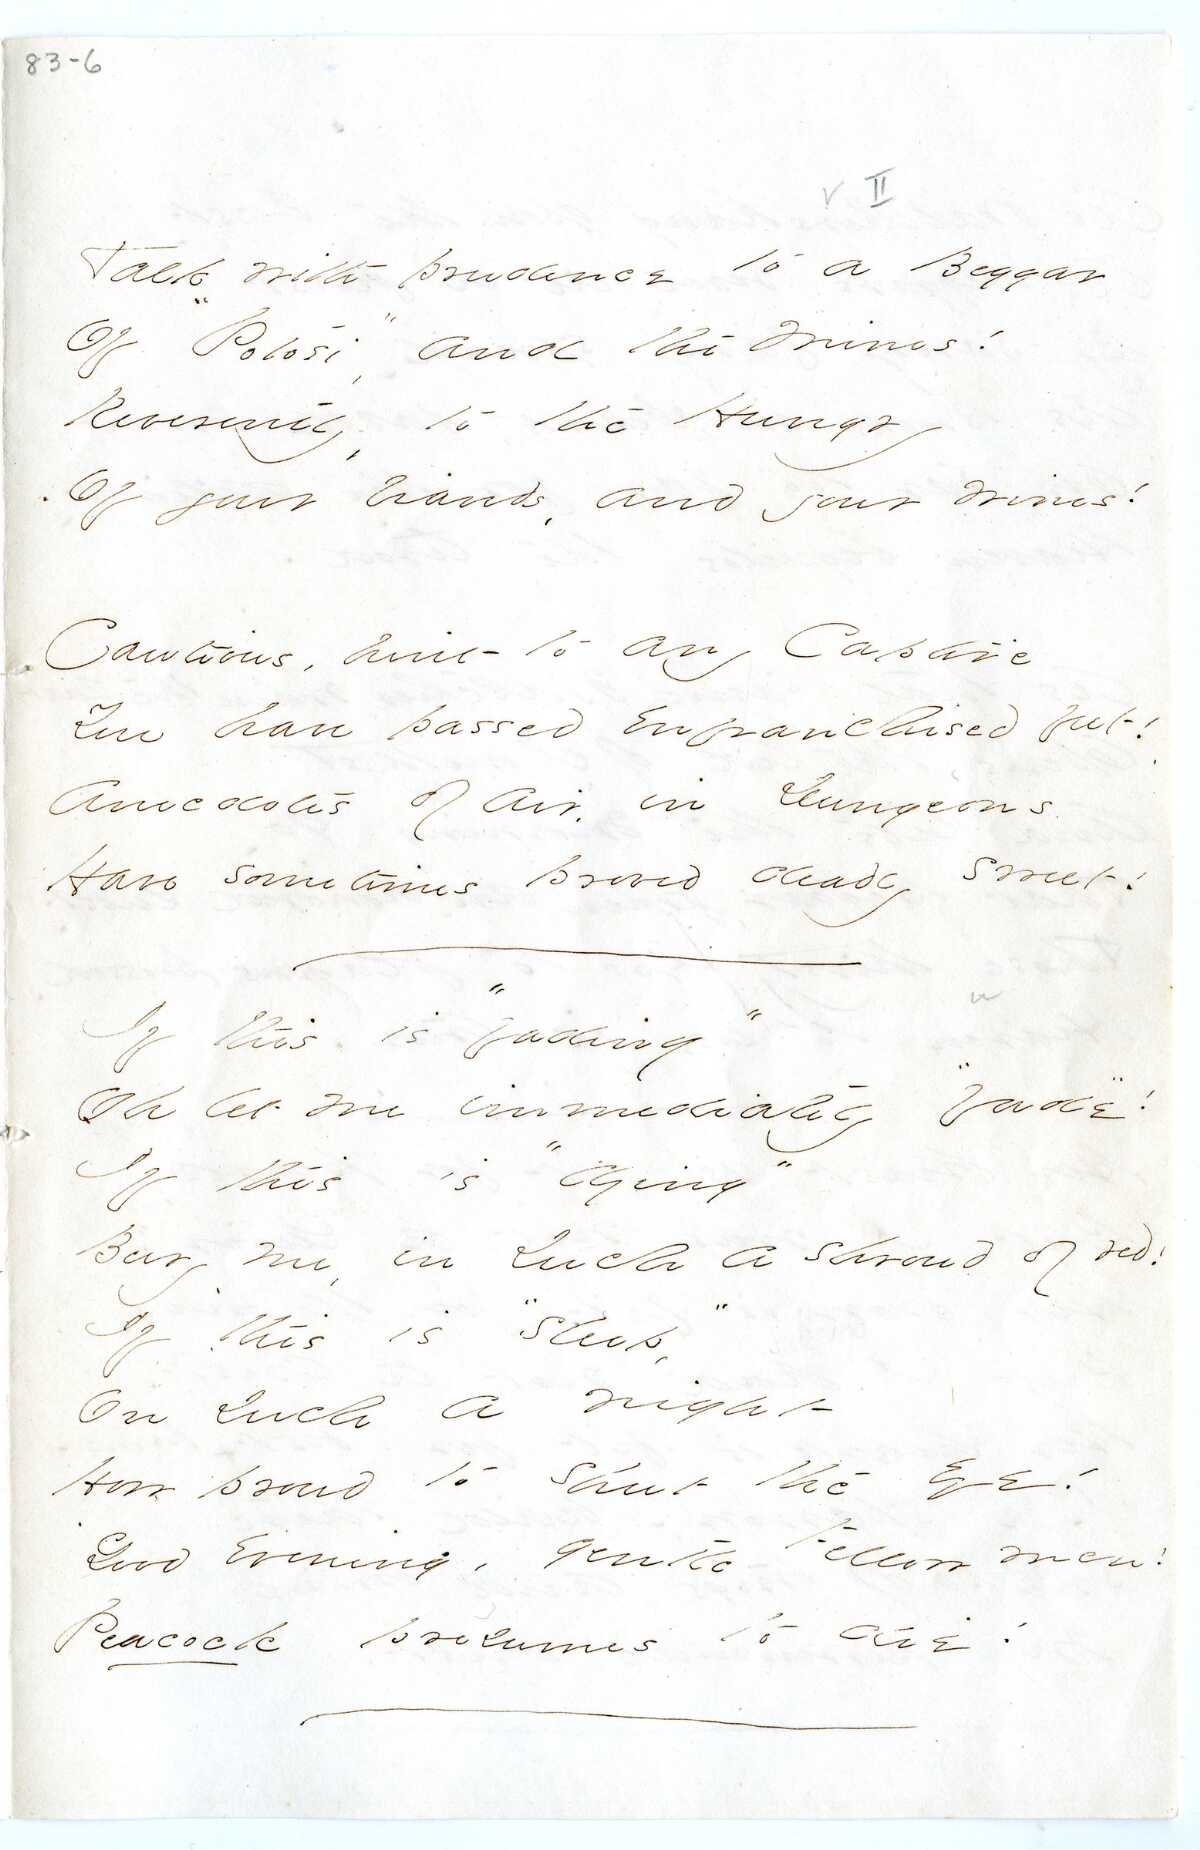 83-6
v II
Talk with prudence to a Beggar
Of "Potosi," and the mines!
Reverently, to the Hungry
Of your viands, and your wines!
Cautious, hint to any Captive
You have passed enfranchised feet!
Anecdotes of air, in Dungeons
Have sometimes proved deadly sweet!
If this is "fading"
Oh let me immediately "fade"!
If this is "dying"
Bury me, in such a shroud of red!
If this is "sleep,"
On such a night
How proud to shut the Eye!
Good Evening, gentle Fellow men!
Peacock presumes to die!